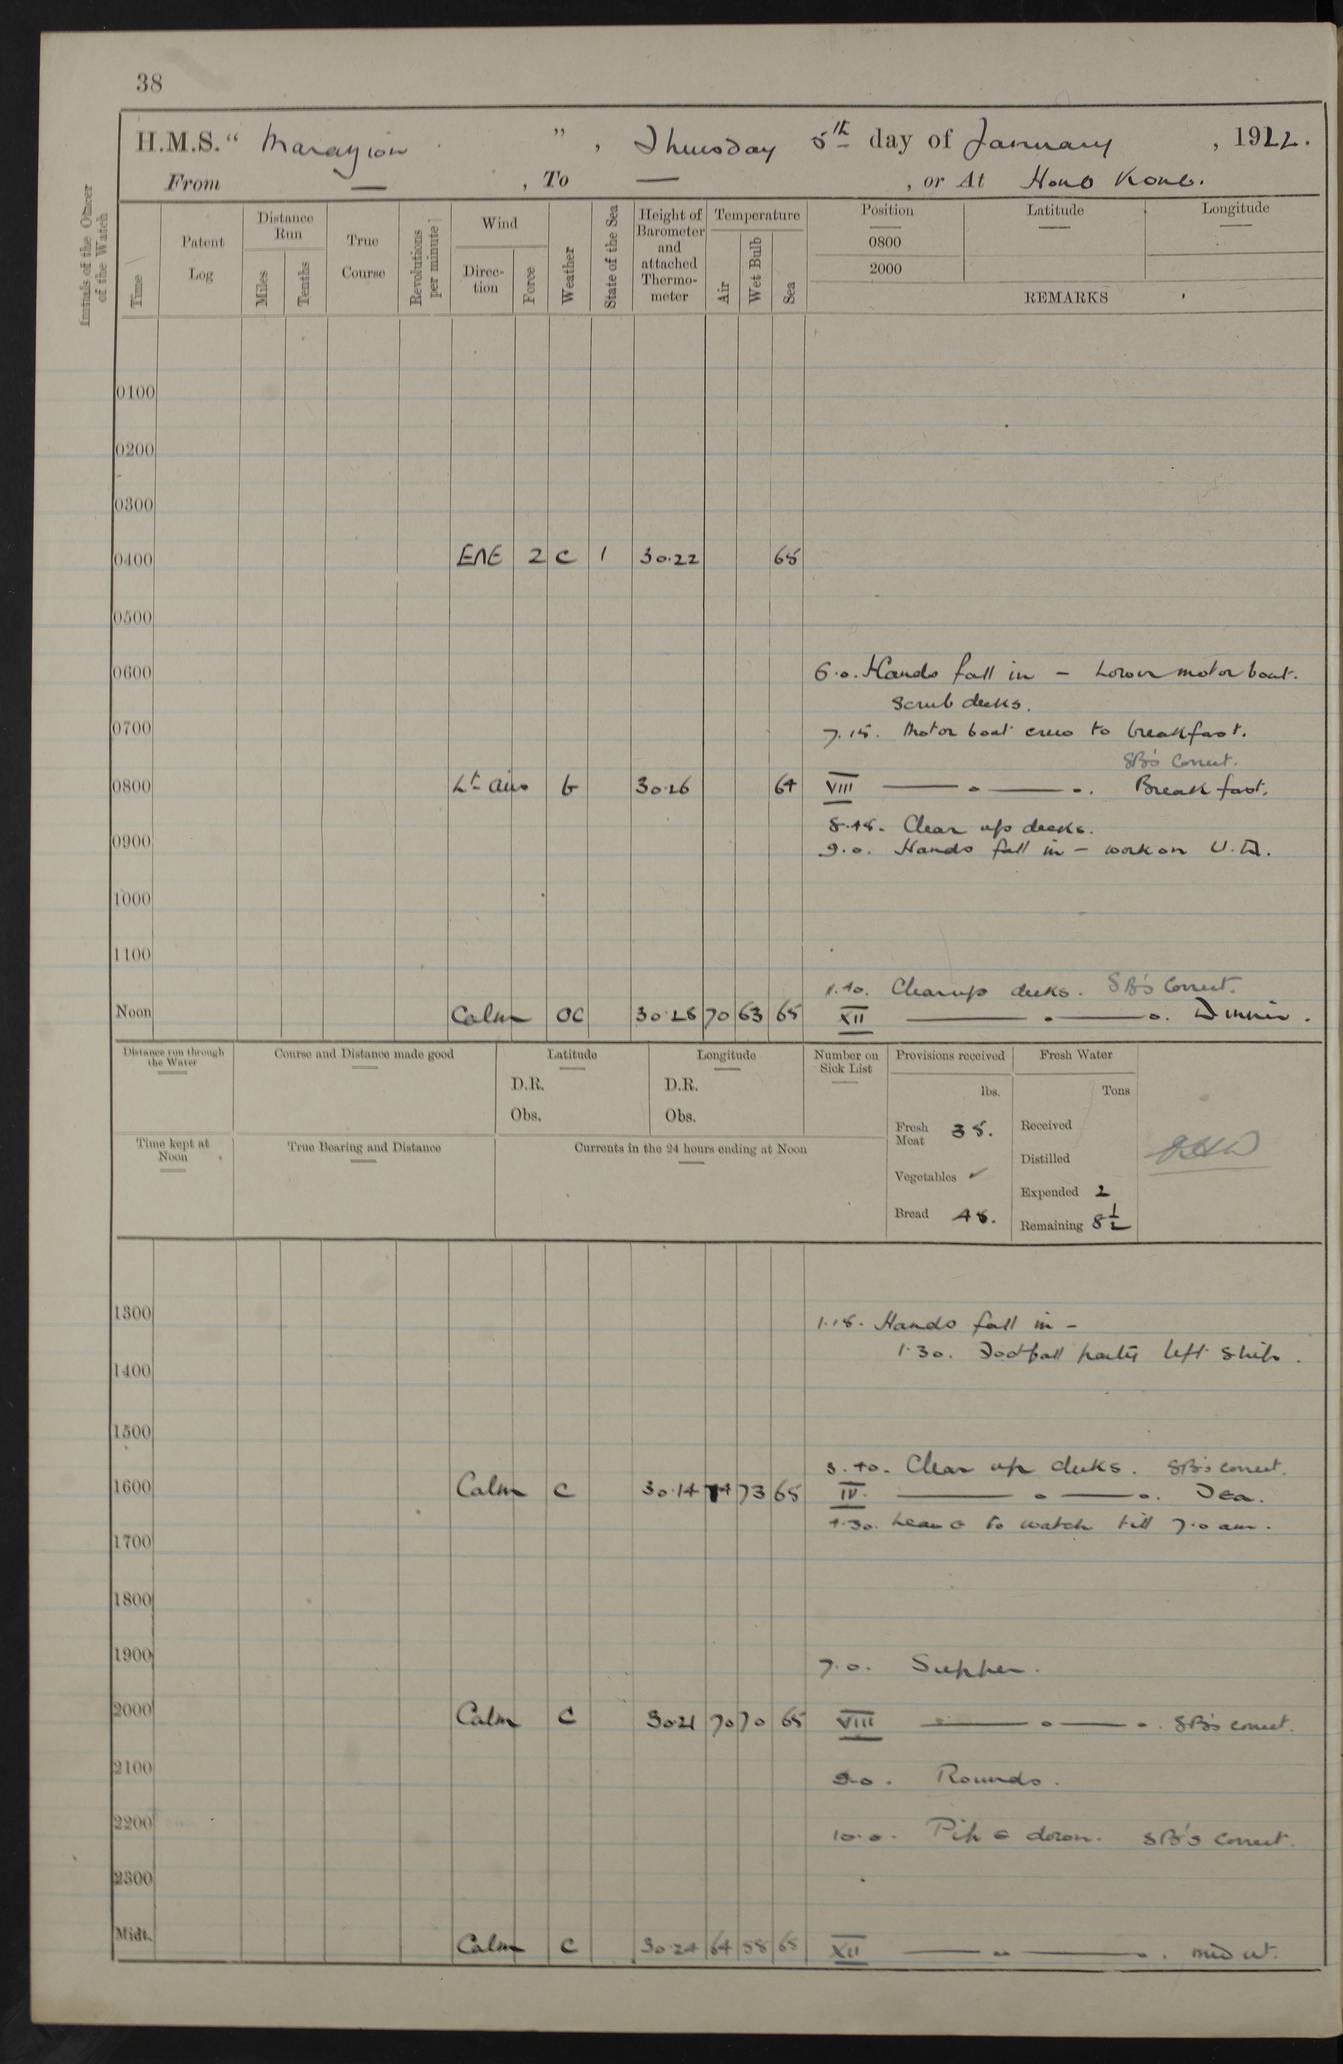 38
H.M.S. " Marazion " , Thursday 5th day of January , 1922.
From — , To — , or At Hong Kong.
Initials of the Officer of the Watch
Time
Patent Log
Distance Run
Miles
Tenths
True Course
Revolutions per minute
Wind
Direc-tion
Force
Weather
State of the Sea
Height of Barometer and attached Thermo-meter
Temperature
Air
Wet Bulb
Sea
Position
0800
2000
Latitude
Longitude
REMARKS
0100
0200
0300
0400 ENE 2 c 1 30.22 65
0500
0600 6.0. Hands fall in – Lower motor boat.
Scrub decks.
0700 7.15. Motor boat crew to breakfast.
SB's Correct.
0800 Lt airs b 30.26 64 VIII — . — . Breakfast.
8.45. Clear up decks.
0900 9.0. Hands fall in – work on U.D.
1000
1100
11.40. Clear up decks. SB's Correct.
Noon Calm oc 30.28 70 63 65 XII — . — . Dinner.
Distance run through the Water
Course and Distance made good
Latitude
D.R.
Obs.
Longitude
D.R.
Obs.
Number on Sick List
Provisions received
lbs.
Fresh Meat 35.
Vegetables ✓
Bread 45.
Fresh Water
Tons
Received
Distilled
Expended 2
Remaining 8½
Time kept at Noon
True Bearing and Distance
Currents in the 24 hours ending at Noon
1300 1.15. Hands fall in –
1.30. Football party left ship.
1400
1500
3.40. Clear up decks. SB's correct.
1600 Calm c 30.14 74 73 65 IV. — . — . Tea.
4.30. Leave to watch till 7.0 am.
1700
1800
1900 7.0. Supper.
2000 Calm c 30.21 70 70 65 VIII — . — . SB's correct.
2100 9.0. Rounds.
2200 10.0. Pipe down. SB's correct.
2300
Midt. Calm c 30.24 64 58 65 XII — . — . mid wt.